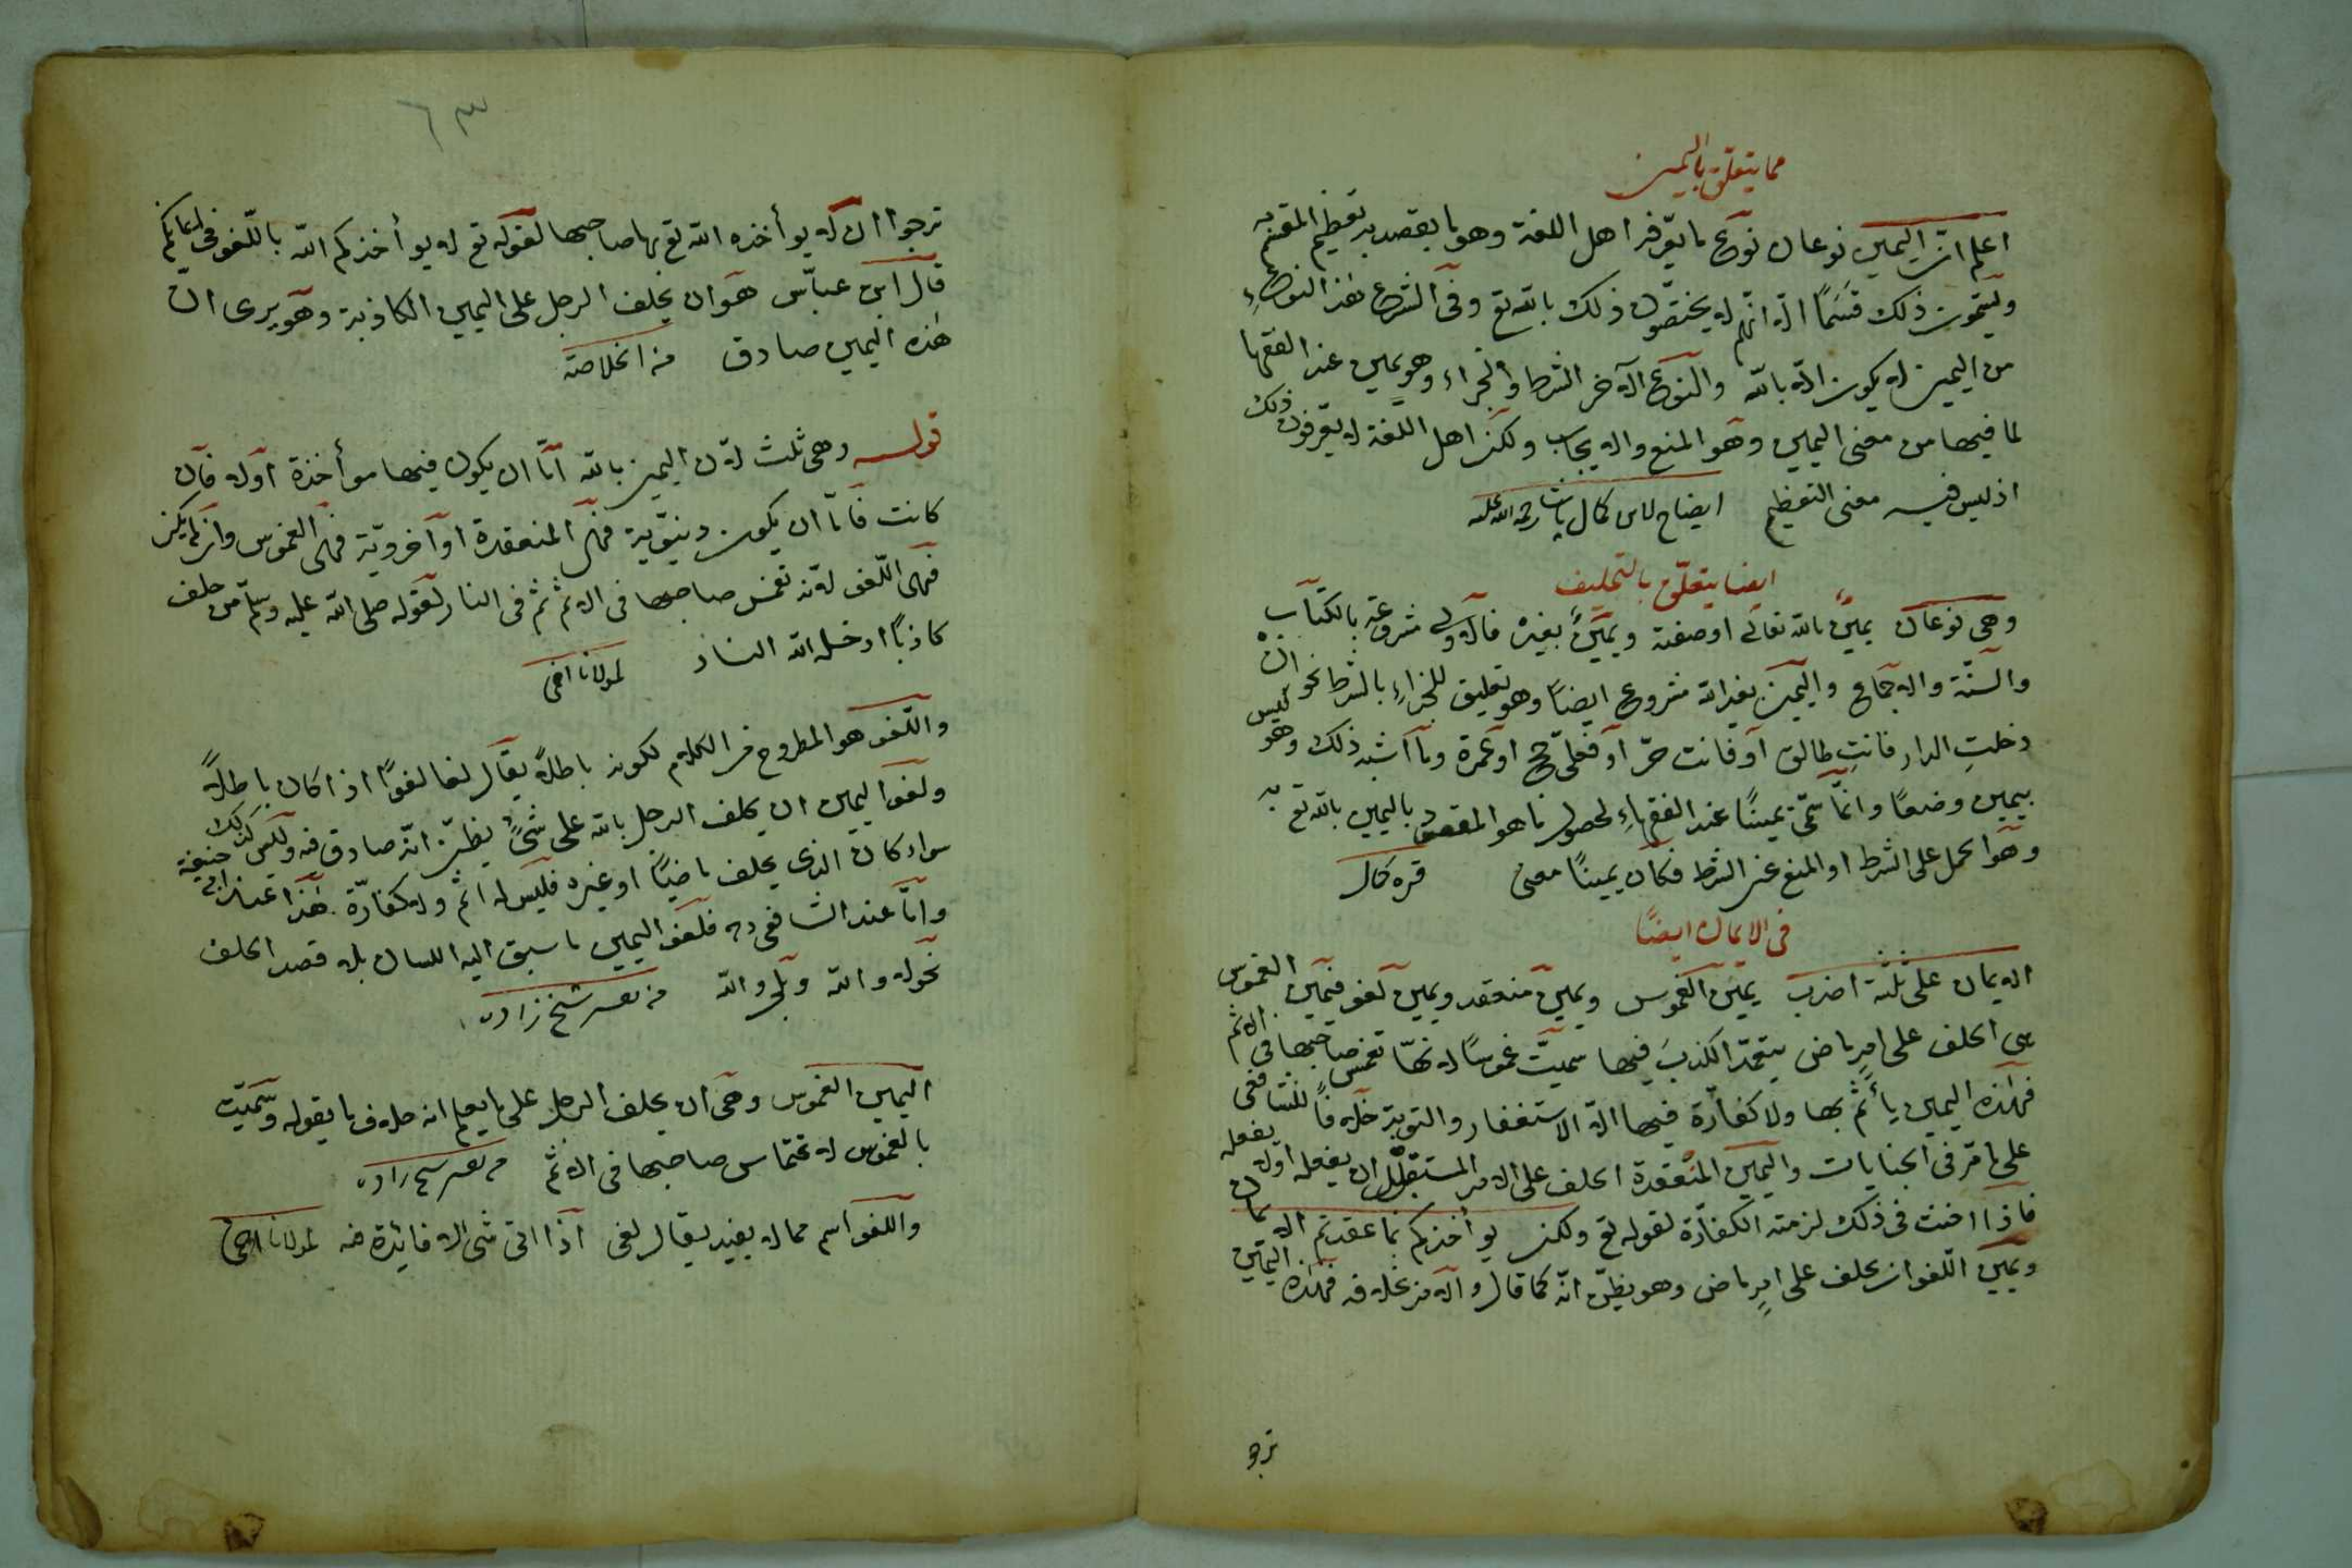 مما يتعلق باليمين
اعلم ان اليمين نوعان نوع ما يعرفه اهل اللغة وهو ما يقصد به تعظيم المقسم به
ويسمون ذلك قسَمًا الا انهم لا يختصون ذلك بالله تع وفى الشرع هذا النوع
من اليمين لا يكون الا بالله والنوع الآخر الشرط والجزاء وهو يمين عند الفقهاء
لما فيها من معنى اليمين وهو المنع والايجاب ولكن اهل اللغة لا يعرفون ذلك
اذ ليس فيه معنى التعظيم ايضاح لابن كمال پاشا رحمة الله عليه
ايضا يتعلق بالتحليف
وهى نوعان يمينٌ بالله تعالى او صفته ويمينٌ بغيره فالاولى مشروعة بالكتاب
والسنّة والاجماع واليمين بغير الله مشروع ايضًا وهو تعليق للجزاءِ بالشرط نحو ان
دخلتِ الدار فانتِ طالق او فانت حرّ او فعلىّ حجّ او عمرة وما اشبه ذلك وهو ليس
بيمين وضعًا وانّما سمّى يمينًا عند الفقهاءِ لحصول ما هو المقصود باليمين بالله تع به
وهو الحمل على الشرط او المنع عن الشرط فكان يمينًا معنى قره كمال
فى الايمان ايضًا
الايمان على ثلثة اضرب يمين الغموس ويمين منعقد ويمين لغو فيمين الغموس
هى الحلف على امرٍ ماض يتعمّد الكذبَ فيها سميت غموسًا لانهّا تغمس صاحبها فى الاثم
فهذه اليمين يأثم بها ولا كفّارة فيها الا الاستغفار والتوبة خلافًا للشافعى
على ما مّر فى الجنايات واليمين المنعقدة الحلف على الامر المستقبل ان يفعله او لا يفعله
فاذا احنث فى ذلك لزمته الكفّارة لقوله تع ولكن يؤاخذكم بما عقدتم الايمان
ويمين اللّغو ان يحلف على امرٍ ماض وهو يظنّ انّه كما قال والامر بخلافه فهذه اليمين
نرجو
٦٣
نرجوا ان لا يوأخذه الله تع بها صاحبها لقوله تع لا يوأخذكم الله باللغو فى ايمانكم
قال ابن عبّاس هو ان يحلف الرجل على اليمين الكاذبة وهو يرى ان
هذه اليمين صادق من الخلاصة
قوله وهى ثلث لان اليمين بالله امّا ان يكون فيها موأخذة اولا فان
كانت فامّا ان يكون دنيوّية فهى المنعقدة او آخرويّة فهى الغموس وان لم يكن
فهى اللّغو لانّه تغمس صاحبها فى الاثم ثم فى النار لقوله صلى الله عليه وسلم من حلف
كاذبًا ادخله الله النار لمولانا اخى
واللّغو هو المطروح من الكلام لكونه باطلاً يقال لغا لغوًا اذا كان باطلاً
ولغو اليمين ان يحلف الرجل بالله على شئٍ يظنّ انّه صادق فيه وليس كذلك
سواء كان الذى يحلف ماضيًا او غيره فليس له اثم ولا كفّارة هذا عند ابى حنيفة
وامّا عند الشافعى ره فلغو اليمين ما سبق اليه اللسان بلا قصد الحلف
نحو لا والله وبلى والله من تفسير شيخ زاده
اليمين الغموس وهى ان يحلف الرجل على ما يعلم انه خلاف ما يقوله وسّميت
بالغموس لاغتماس صاحبها فى الاثم من تفسير شيخ زاده
واللغو اسم مما لا يفيد يقال لغى اذا اتى شئ لا فائدة فيه لمولانا اخى